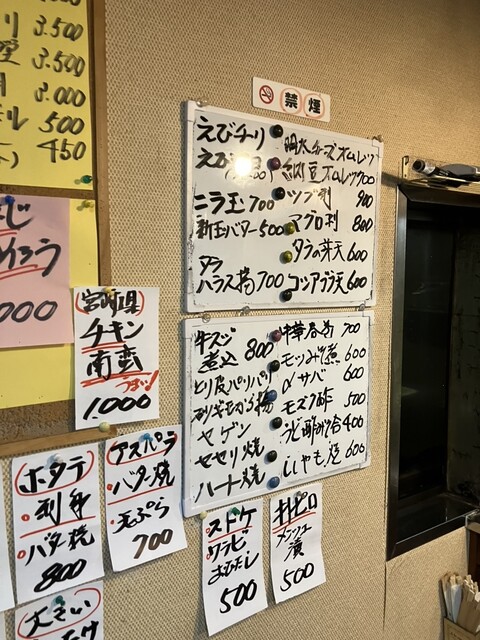 3.500
3.500
3.000
500
450
000
禁煙
えびチリ
ニラ玉 700
新玉バター 500
タラ
ハラス揚 700
明太チーズオムレツ
納豆オムレツ 700
ツブ刺 900
マグロ刺 800
タラの芽天 600
コシアブラ天 600
牛スジ
煮込 800
とり皮パリパリ
ヤゲン
セセリ焼
ハート焼
中華春巻 700
モツみそ煮 600
〆サバ 600
モズク酢 500
うど酢みそ合 400
ししゃも焼 600
宮崎県
チキン
南蛮
1.000
ホタテ
・刺身
・バター焼
800
アスパラ
・バター焼
・天ぷら
700
・スドケ
・ワラビ
おひたし
500
メンツユ
漬
500
大きい